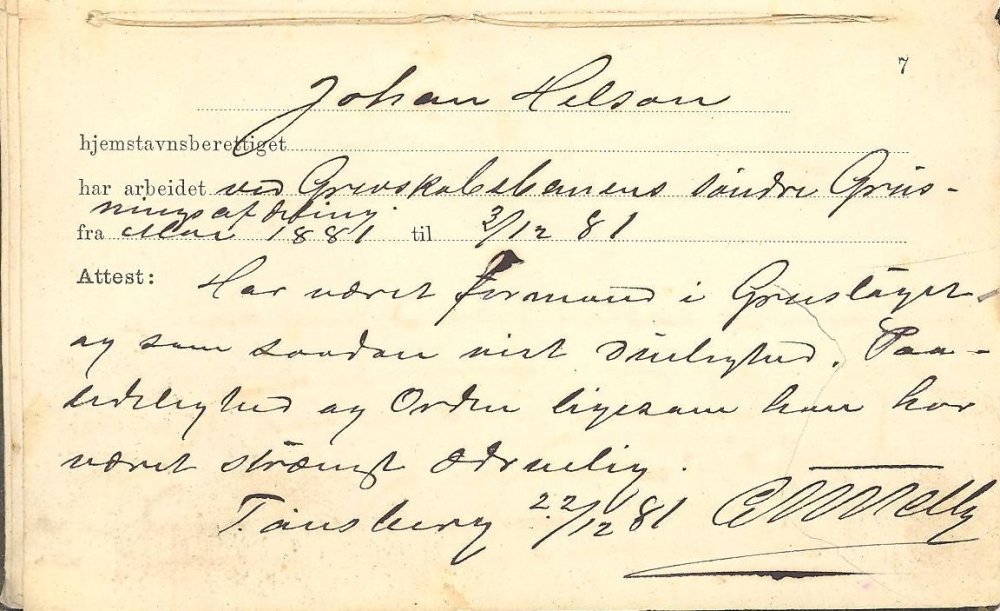 7
Johan Nelson
hjemstavnsberettiget
har arbeidet ved Grevskabsbanens søndre Grus-
ningsafdeling.
fra Mai 1881 til 3/12 81
Attest: Har været Formand i Gruståget
og som saadan vist Duelighed, Paa-
lidelighed og Orden ligesom han har
været strængt ædruelig.
Tønsberg 22/12 81